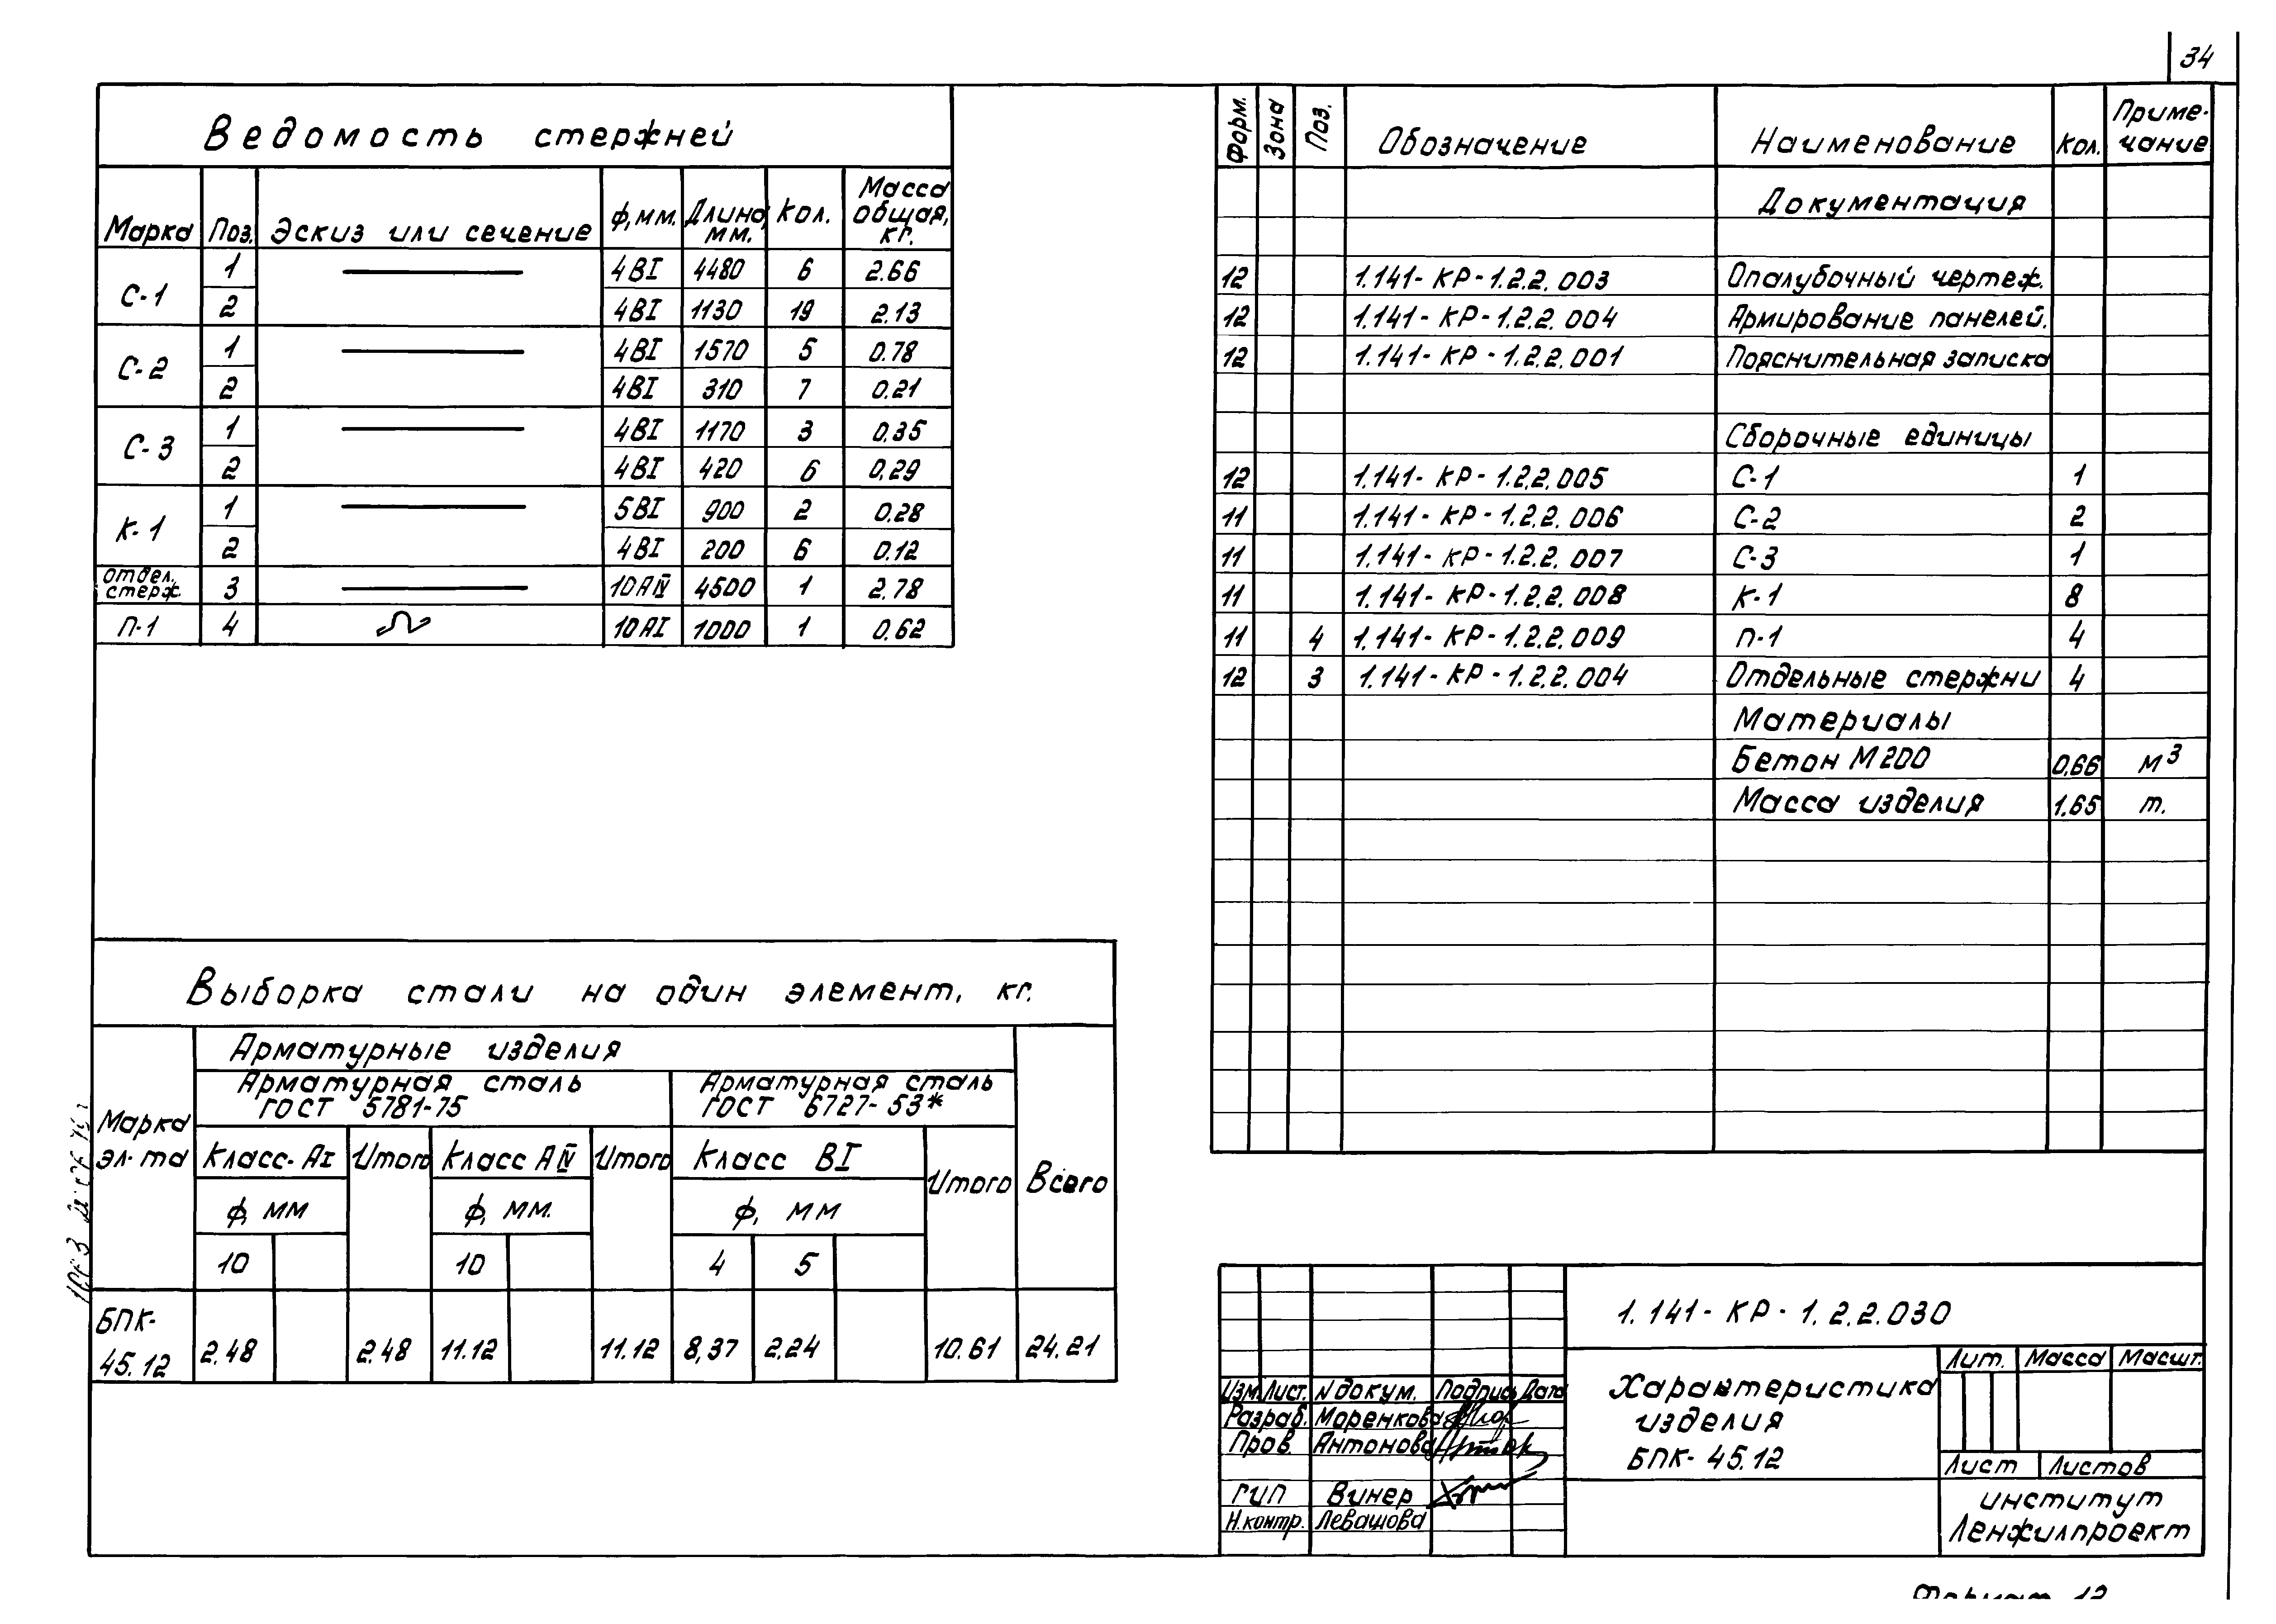 34
Ведомость стержней
Марка Поз. Эскиз или сечение ф,мм. Длина, мм. Кол. Масса общая, кг.
С-1 1 4ВI 4480 6 2.66
2 4ВI 1130 19 2.13
С-2 1 4ВI 1570 5 0.78
2 4ВI 310 7 0.21
С-3 1 4ВI 1170 3 0.35
2 4ВI 420 6 0.29
К-1 1 5ВI 900 2 0.28
2 4ВI 200 6 0.12
отдел. стерж. 3 10АIV 4500 1 2.78
П-1 4 10АI 1000 1 0.62
Форм. Зона Поз. Обозначение Наименование Кол. Приме-чание
Документация
12 1.141-КР-1.2.2.003 Опалубочный чертеж.
12 1.141-КР-1.2.2.004 Армирование панелей.
12 1.141-КР-1.2.2.001 Пояснительная записка
Сборочные единицы
12 1.141-КР-1.2.2.005 С-1 1
11 1.141-КР-1.2.2.006 С-2 2
11 1.141-КР-1.2.2.007 С-3 1
11 1.141-КР-1.2.2.008 К-1 8
11 4 1.141-КР-1.2.2.009 П-1 4
12 3 1.141-КР-1.2.2.004 Отдельные стержни 4
Материалы
Бетон М200 0,66 м³
Масса изделия 1,65 т.
Выборка стали на один элемент, кг.
Марка эл-та
Арматурные изделия
Арматурная сталь ГОСТ 5781-75
Арматурная сталь ГОСТ 6727-53*
Класс-АI Итого Класс АIV Итого Класс ВI Итого Всего
ф, мм ф, мм. ф, мм
10 10 4 5
БПК-45.12 2.48 2.48 11.12 11.12 8,37 2.24 10.61 24.21
1.141-КР-1.2.2.030
Изм. Лист. N докум. Подпись Дата
Разраб. Моренкова
Пров. Антонова
ГИП Винер
Н.контр. Левашова
Характеристика
изделия
БПК-45.12
Лит. Масса Масшт.
Лист Листов
институт
Ленжилпроект
Формат 12